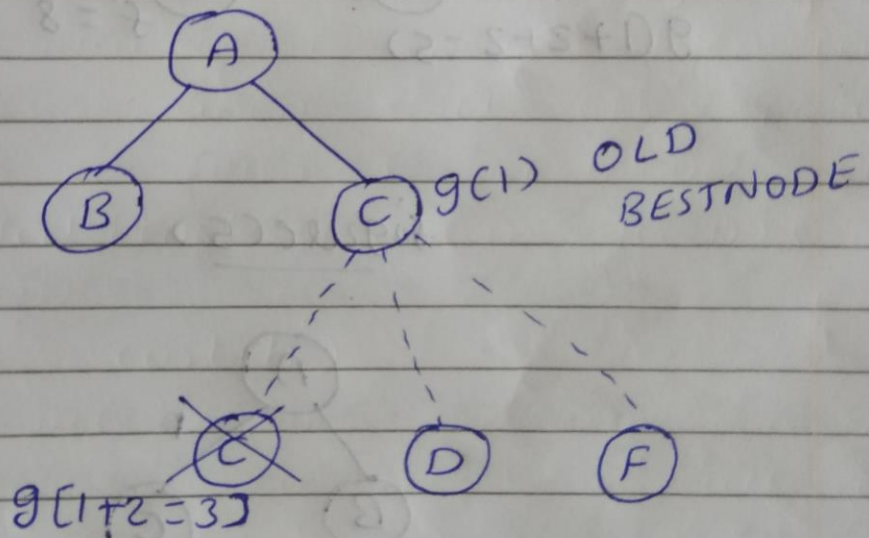 A
B
C g(1) OLD
BESTNODE
C
D
F
g[1+2=3]